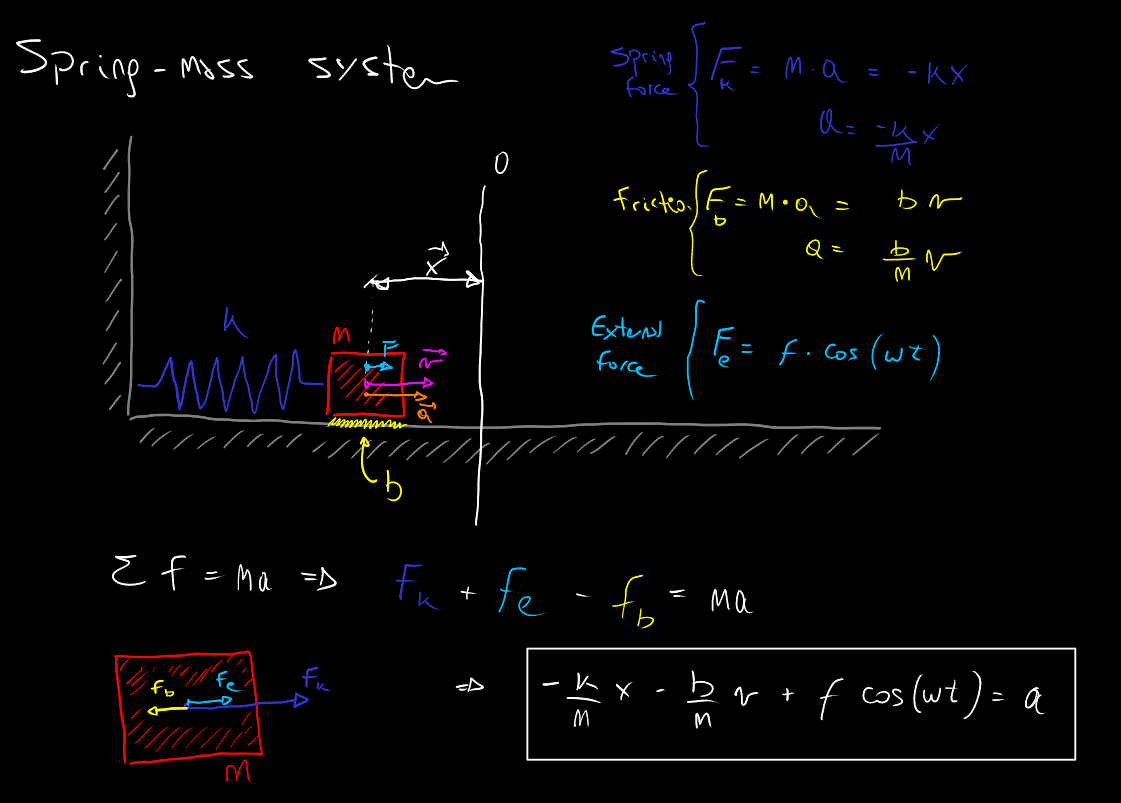 Spring-mass system
Spring force { F_k = M·a = -kx
a = -k/M x
Friction { F_b = M·a = b v
a = b/M v
External force { F_e = f·cos(wt)
0
x⃗
k
M
F
v⃗
a⃗
b
Σf = Ma ⇒ F_k + f_e - f_b = Ma
f_b f_e F_k
M
⇒ -k/M x - b/M v + f cos(wt) = a